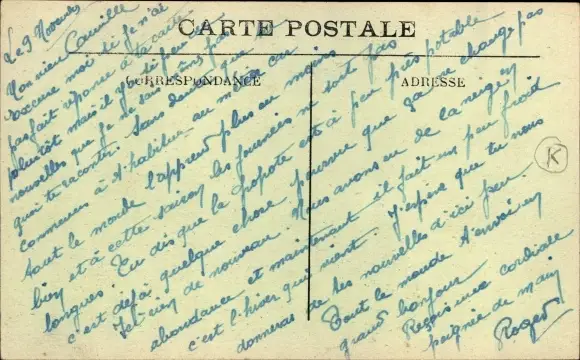 CARTE POSTALE
CORRESPONDANCE
ADRESSE
K
Le 9 Novembre
Mon vieux Camille
Excuse moi si je n'ai
pas fait réponse à ta carte
plutôt mais il y a si peu de
nouvelles que je ne sais pas
quoi te raconter. Sans doute que tu
commences à t'habituer au métier car
tout le monde l'apprend plus ou moins
bien et à cette saison les journées ne sont pas
longues. Tu dis que la popote est à peu près potable
c'est déjà quelque chose pourvu que ça ne change pas
Ici rien de nouveau. Nous avons eu de la neige en
abondance et maintenant il fait un peu froid
c'est l'hiver qui vient. J'espère que tu nous
donneras de tes nouvelles d'ici peu.
Tout le monde t'envoie un
grand bonjour
Reçois une cordiale
poignée de main
Roger